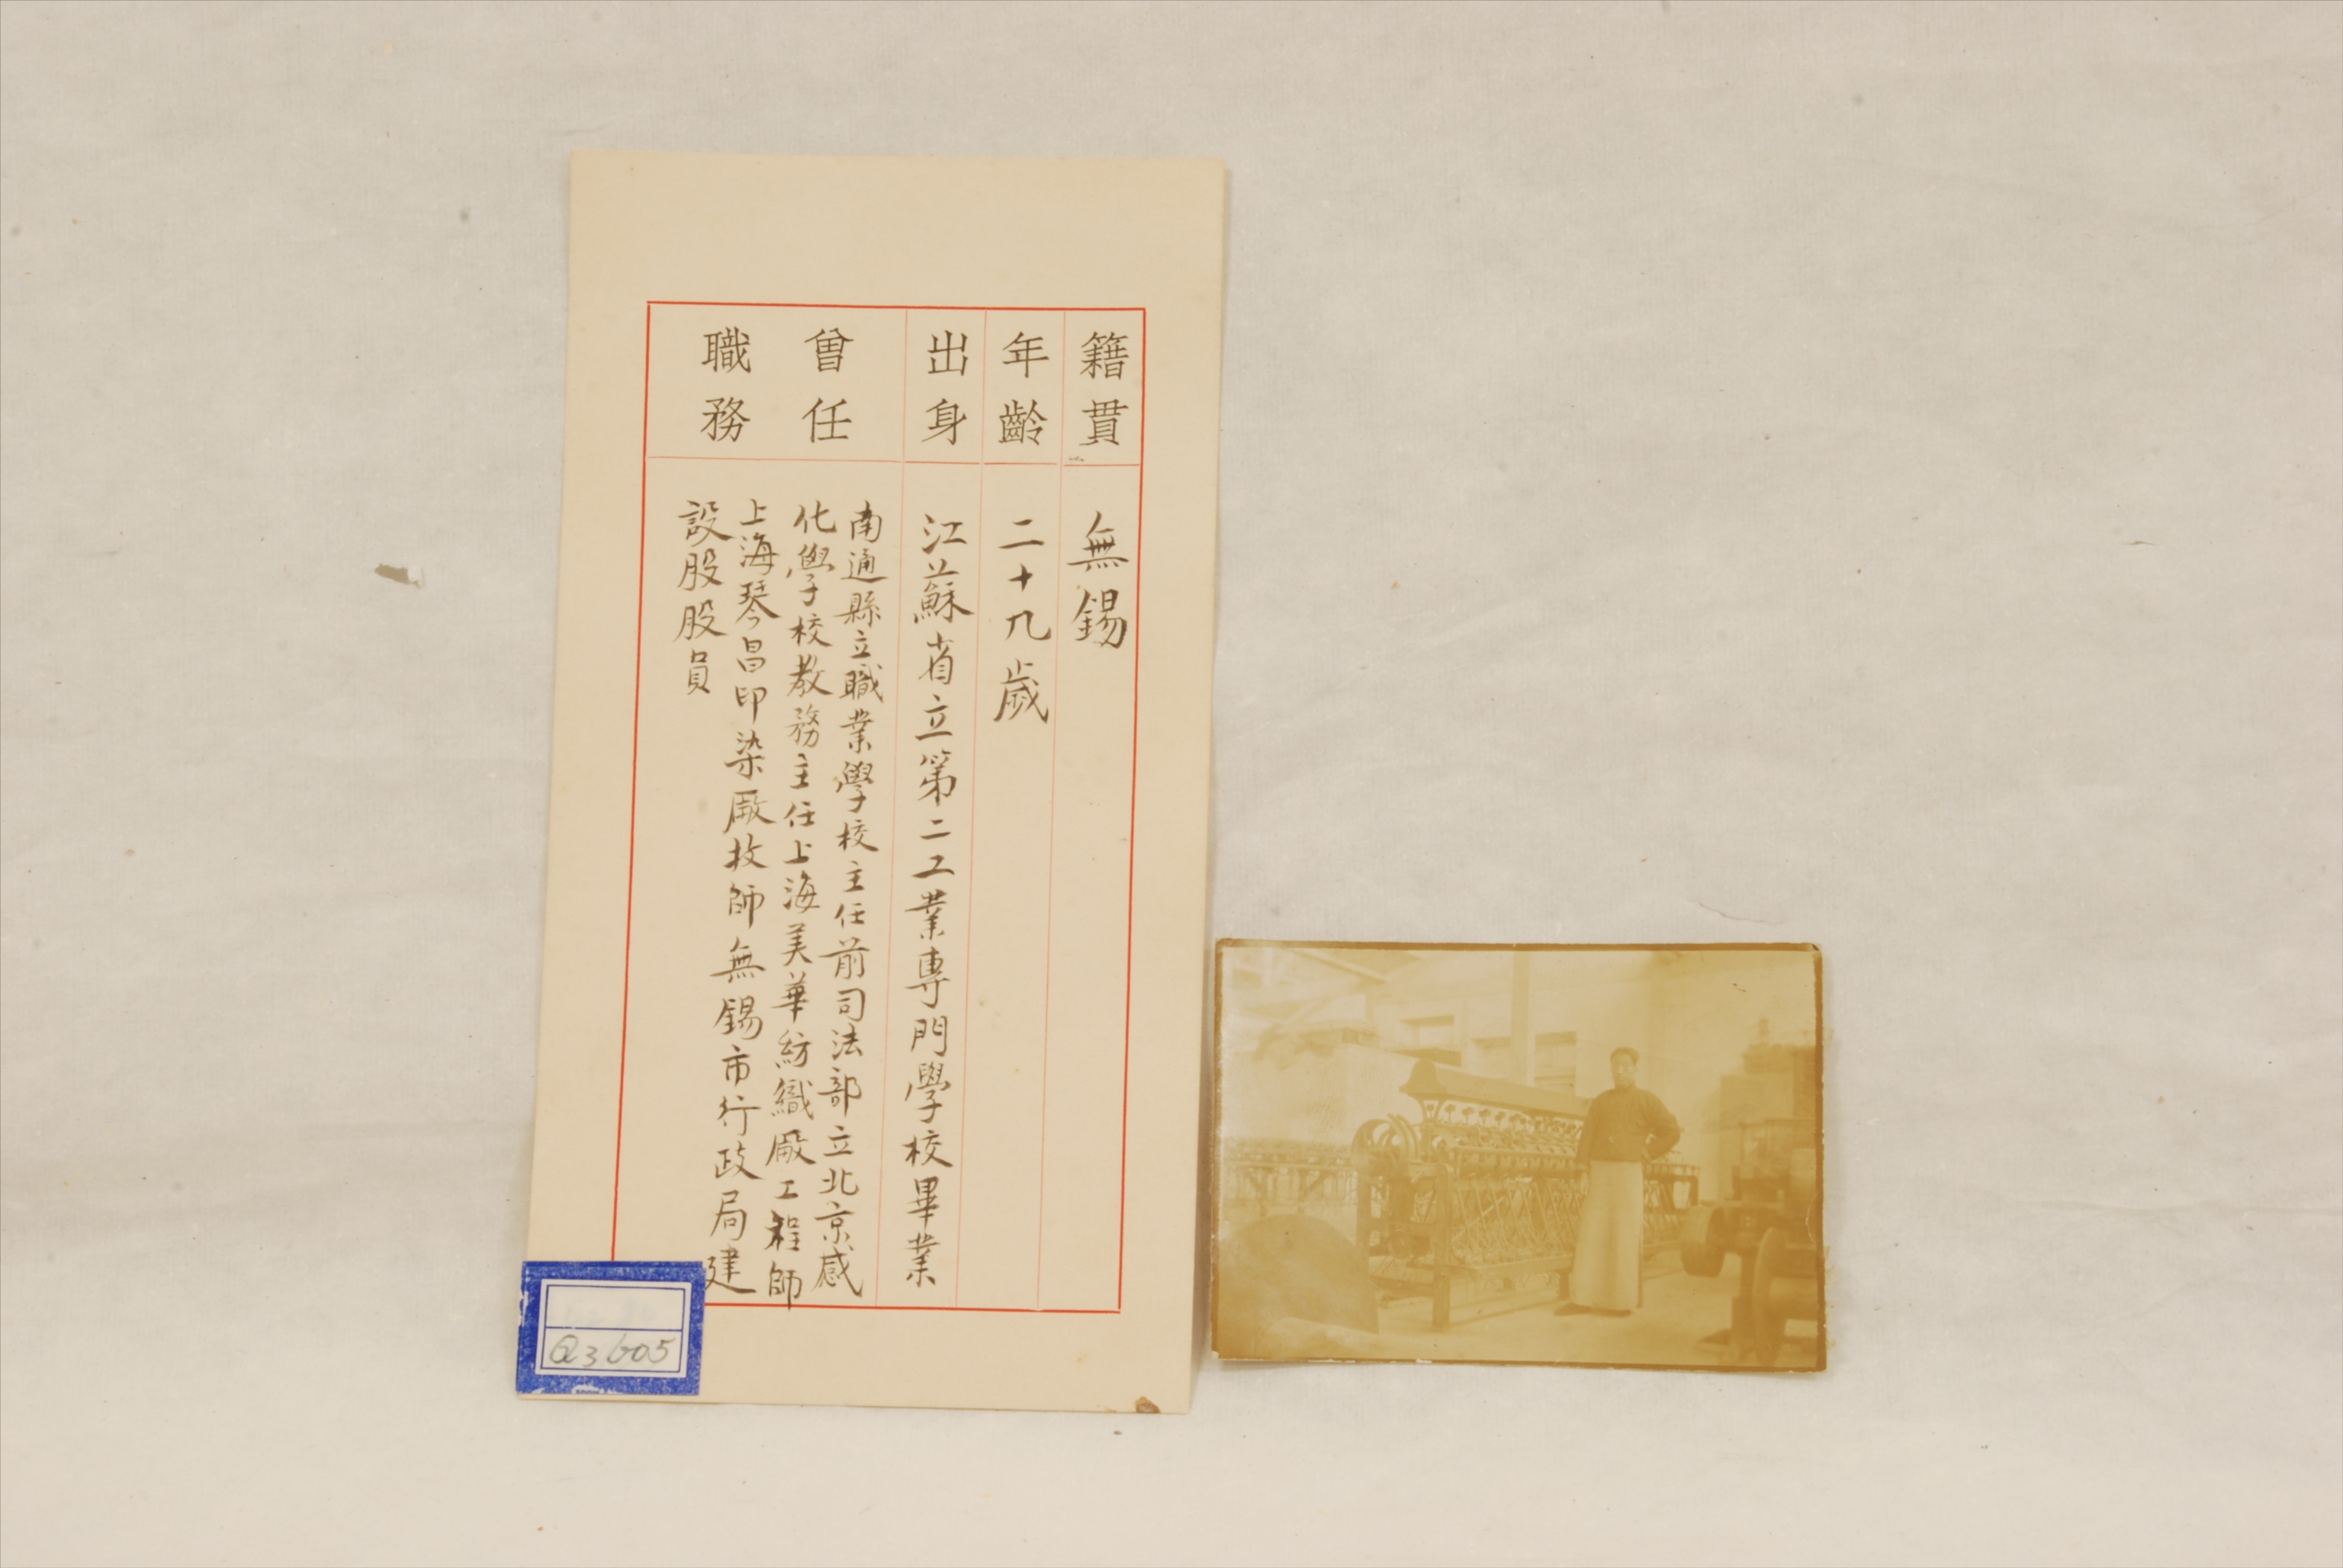 籍貫 無錫
年齡 二十八歲
出身 江蘇省立第二工業專門學校畢業
曾任
職務
南通縣立職業學校主任前司法部立北京感
化學校教務主任上海美華紡織廠工程師
上海琴昌印染廠技師無錫市行政局建
設股股員
Q3605